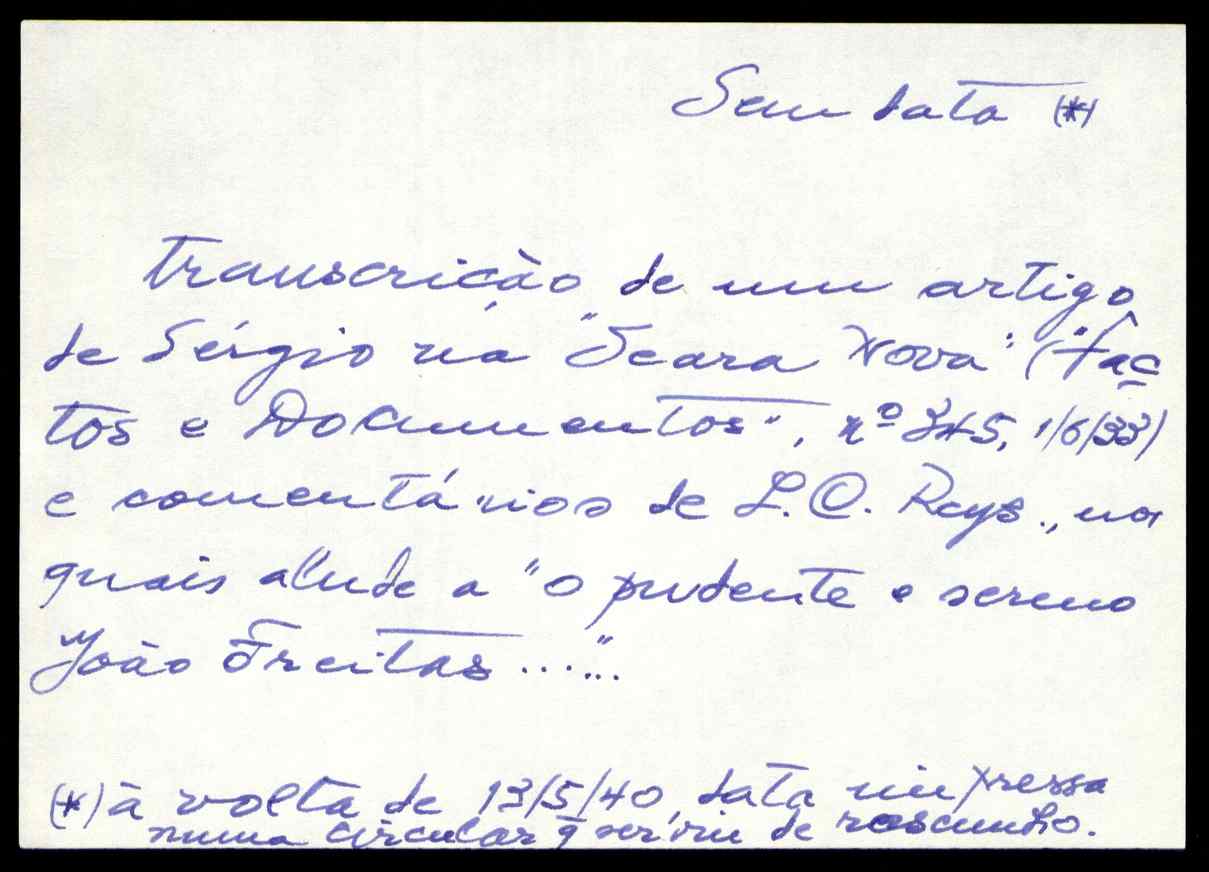 Sem data (*)
Transcrição de um artigo
de Sérgio na "Seara Nova" ("Fac-
tos e Documentos", nº 345, 1/6/33)
e comentários de L. C. Reys., nos
quais alude a "o prudente e sereno
João Freitas ..."...
(*) à volta de 13/5/40, data impressa
numa circular q̄ serviu de rascunho.